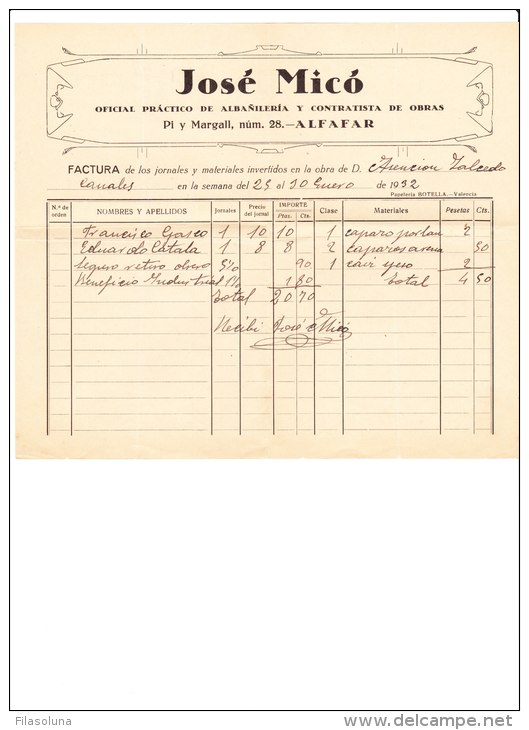 José Micó
OFICIAL PRÁCTICO DE ALBAÑILERÍA Y CONTRATISTA DE OBRAS
Pi y Margall, núm. 28.—ALFAFAR
FACTURA de los jornales y materiales invertidos en la obra de D. Asencion Salcedo
Canales en la semana del 25 al 30 Enero de 1932
Papelería BOTELLA.—Valencia
N.º de orden NOMBRES Y APELLIDOS Jornales Precio del jornal IMPORTE Ptas. Cts. Clase Materiales Pesetas Cts.
Francisco Gasco 1 10 10 1 caparo porlan 2
Eduardo Catala 1 8 8 2 caparos arena 50
seguro retiro obrero 5% 90 1 caiz yeso 2
Beneficio Industrial 1 80 total 4 50
total 20 70
Recibi José Micó
Filasoluna
www.delcampe.net